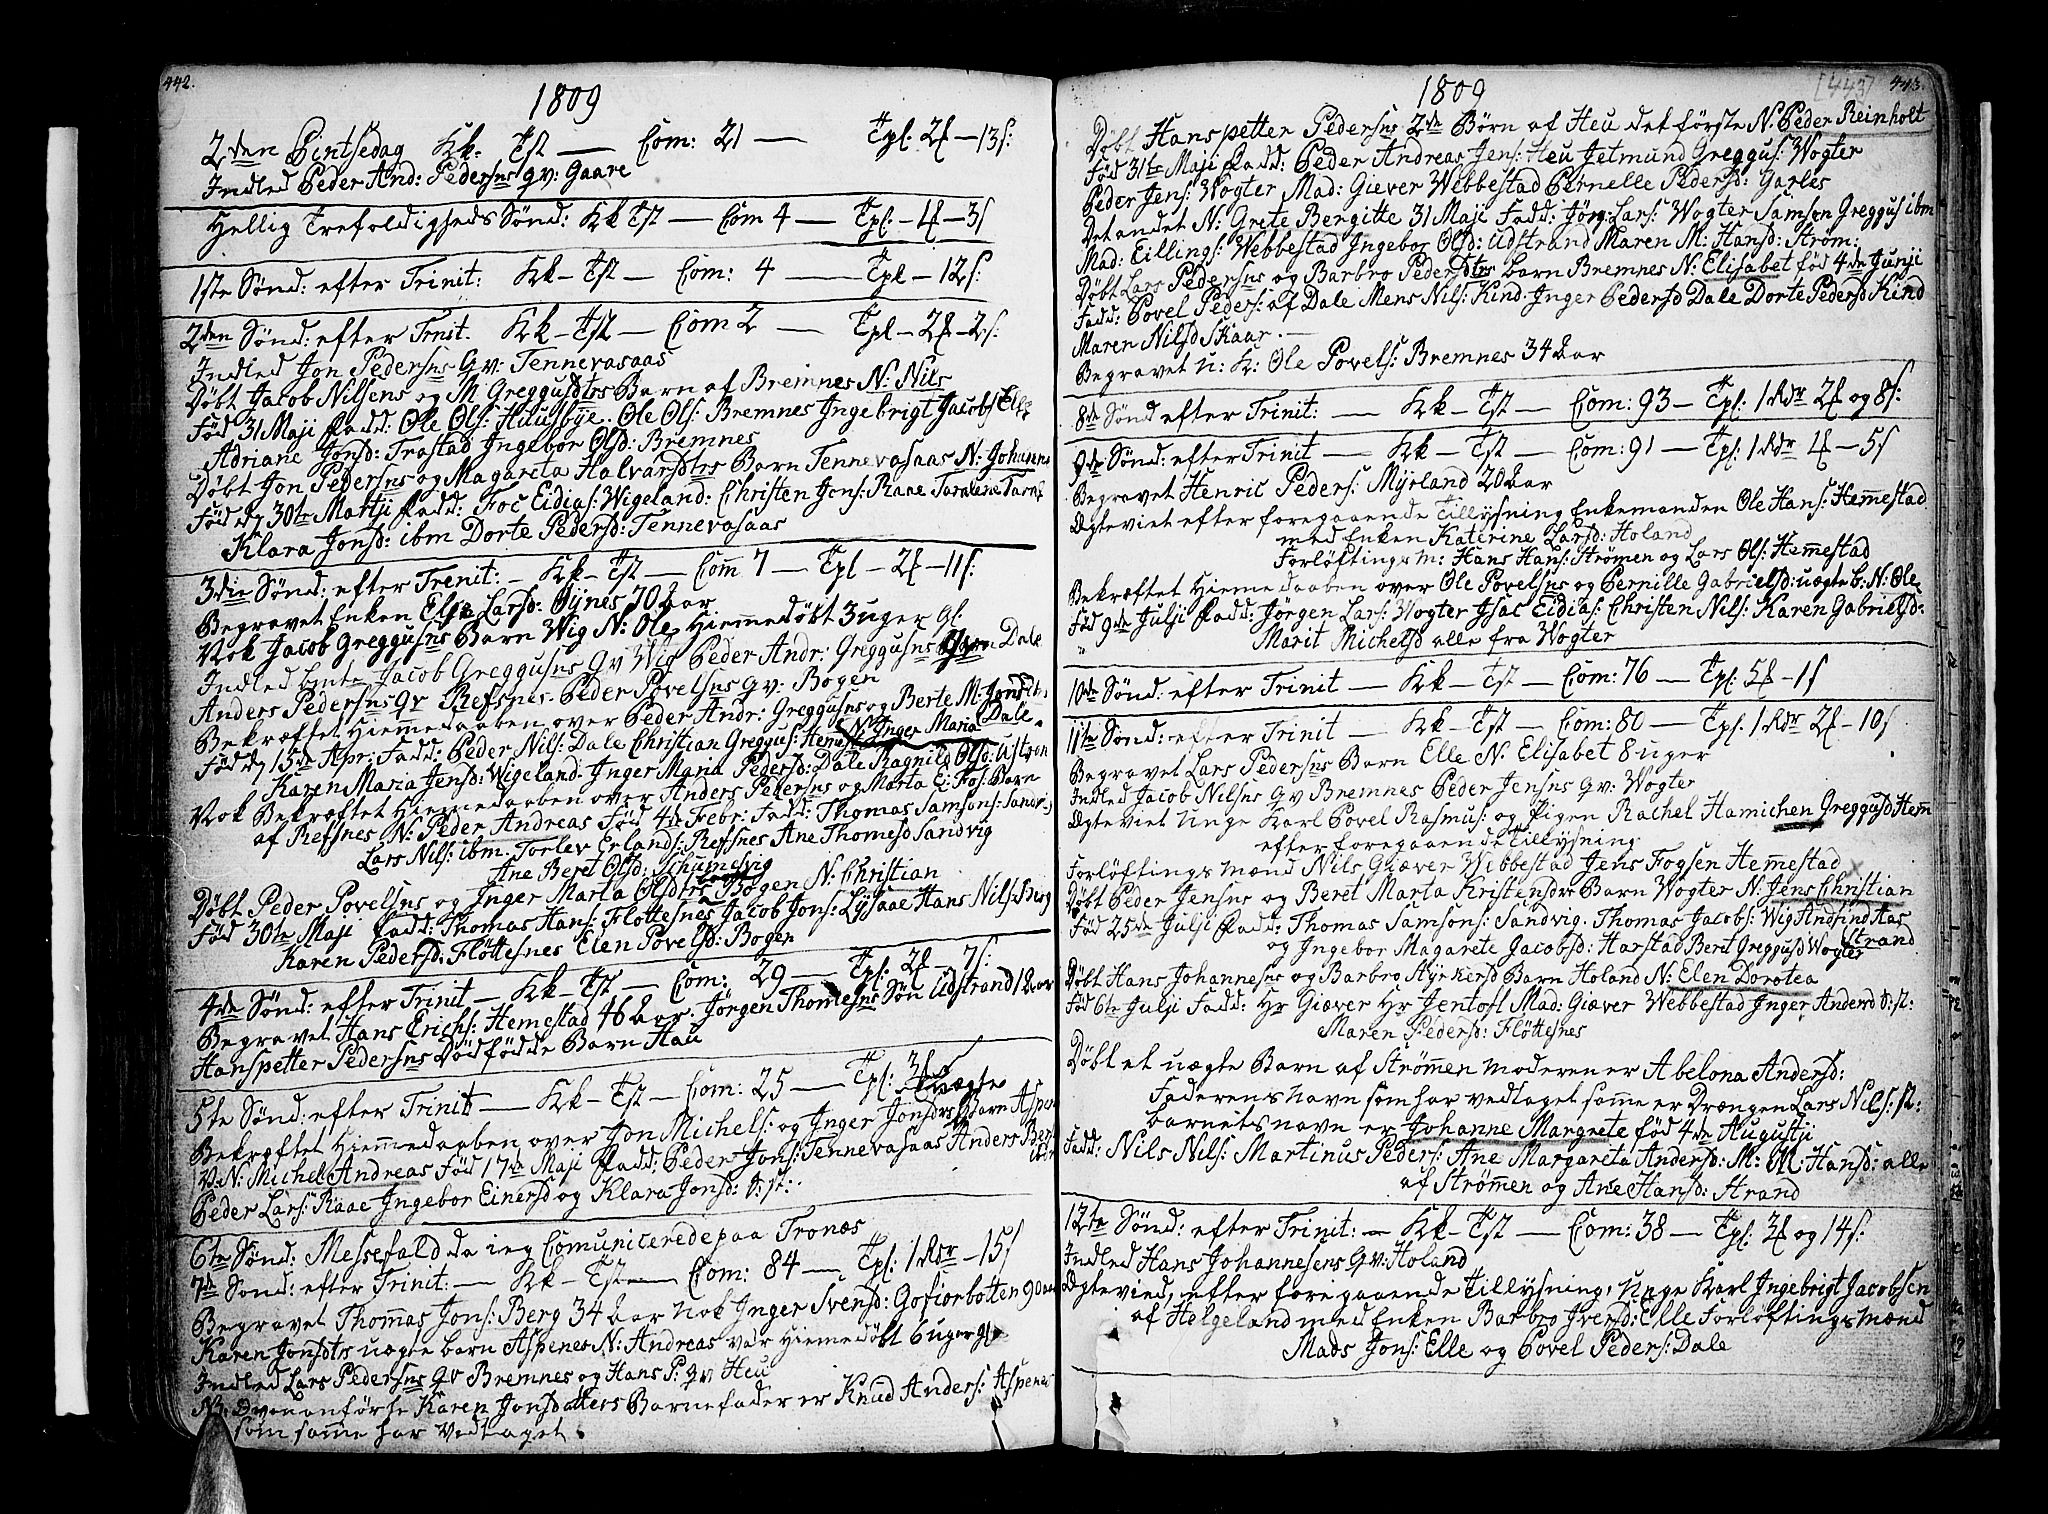 442.
1809
2den Pintsedag Kk- Tst — Com: 21 — Tpl: 2f — 13s:
Indled Peder And: Pedersns qv: Gaare
Hellig Trefoldigheds Sønd: Kk Tst — Com 4 — Tpl. — 4f — 3s
1ste Sønd: efter Trinit: Kk — Tst — Com: 4 — Tpl — 12s:
2den Sønd: efter Trnit. Kk — Tst — Com 2 — Tpl — 2f — 2s.
Indled Jon Pedersns Qv: Tennevasaas
Døbt Jacob Nilsens og M Greggusdtrs Barn af Bremnes N: Nils
Fød 31 Maji Fadd: Ole Ols: Huusbye. Ole Ols: Bremnes Ingebrigt Jacobs Elle
Adriane Jonsd: Trastad Ingebor Olsd: Bremnes
Døbt Jon Pedersns og Magareta Halvarsdtrs Barn Tennevasaas N: Johannes
Fød dj 30te Maji Fadd: Foc Eidias: Wigeland: Christen Jons: Raae
Klara Jonsd: ibm Dorte Pedersd: Tennevasaas
3die Sønd: efter Trenit: — Kk — Tst — Com 7 — Tpl — 2f — 11s:
Begravet Enken Else Larsd: Øynes 70 aar
Nok Jacob Greggusns Barn Wig N: Ole Hiemmedøbt 3 uger gl.
Indled bmte Jacob Greggusns Qv Wig Peder Andr: Greggusns Dale
Anders Pedersns Qv Refsnes. Peder Povelsns qv: Bogen
Bekræftet Hiemmedaaben over Peder Andr: Greggusns og Berte M: Jonsdtr
N: Inger Maria Dale.
Fød dj 15de Apr: Fadd: Peder Nils: Dale Christian Greggus: Hemest
Karen Maria Jensd: Wigeland. Inger Maria Pedersd: Dale Ragnild Olsd: Ustran
Nok Bekræftet Hiemmedaaben over Anders Pedersns og Marta Ei: Fos: Barn
af Refsnes N: Peder Andreas Fød 4de Febr: Fadd: Thomas Samsons: Sandvi
Lars Nils: ibm. Torlev Erlands: Refsnes Ane Thomesd Sandvig
Ane Beret Olsd:
Døbt Peder Povelsns og Inger Marta Olsdtrs Bogen N: Christian
Fød 30te Maji Fadd: Thomas Hans: Fløttesnes Jacob Jons: Lysaae Hans Nils: Brug
Karen Pedersd: Fløttesnes Elen Povelsd: Bogen
4de Sønd: efter Trinit — Kk — Tst — Com: 29 — Tpl: 2f — 7s:
Begravet Hans Erichs: Hemestad 46 aar. Jörgen Thomesns Søn Udstrand 1 aar
Hanspetter Pedersns Dødfødde Barn Hau
5te Sønd: efter Trinit — Kk — Tst — Com: 25 — Tpl: 3f
Bekræftet Hiemmedaaben over Jon Michels: og Inger Jonsdrs uægte Barn Aspen
V: N: Michel Andreas Fød 17de Maji Fadd: Peder Jons: Tennevasaas Anders Ber
Peder Lars: Raae Ingebor Einersd og Klara Jonsd: S: st:
6te Sønd: Messefald da ieg Comuniceredepaa Tronæs
7de Sønd: efter Trinit: — Kk — Tst — Com: 84 — Tpl: 1 Rdr — 15s
Begravet Thommas Jons: Berg 34 aar Nok Inger Svensd: Gofiorbotten 90 aar
Karen Jonsdtrs uægte barn Aspenes N: Andreas var Hiemedøbt 6 uger gl
Indled Lars Pedersns Qv Bremnes og Hans P: qv Heu
N: Ovenanførte Karen Jonsdatters Barnefader er Knud Anders: Aspenes
som samme har vedtaget
[443] 443.
1809
Døbt Hanspetter Pedersns 2de Børn af Heu det første N. Peder Reinholt
Fød 31te Maji Fadd: Peder Andreas Jens: Heu Jetmund Greggus: Wogter
Peder Jens: Wogter Mad: Giever Webbestad Pernelle Pedersd: Garles
Det andet N: Grete Bergitte 31 Maji Fadd: Jörg: Lars: Wogter Samson Greggus ibm
Mad: Eillings: Webbestad Ingebor Olsd: Udstrand Maren M: Hansd: Strøm:
Døbt Lars Pedersns og Barbro Pedersdtrs barn Bremnes N: Elisabet fød 4de Junji
Fadd: Povel Peders: af Dale Mens Nils: Kind. Inger Pedersd Dale Dorte Pedersd Kind
Maren Nilsd Skaar. —
Begravet u: K: Ole Povels: Bremnes 34 aar
8de Sønd efter Trinit: — Kk — Tst — Com: 93 — Tpl: 1 Rdr 2f og 8s:
9de Sønd: efter Trinit — Kk — Tst — Com: 91 — Tpl: 1 Rdr 4f — 5s
Begravet Henric Peders: Myrland 20 aar
Ægteviet efter foregaaende Tillysning Enkemanden Ole Hans: Hemmestad
med Enken Katerine Larsd: Holand
Forløftings m: Hans Hans: Strømen og Lars Ols: Hemmestad
Bekræftet Hiemedaaben over Ole Povelsns og Pernille Gabrielsd: uægte b: N: Ole
Fød 9de Julji Fadd: Jörgen Lars: Wogter Isac Eidias: Christen Nils: Karen Gabrielsd:
Marit Michelsd alle fra Wogter
10de Sønd: efter Trinit — Kk — Tst — Com: 76 — Tpl: 5f — 1s
11te Sønd: efter Trinit — Kk — Tst — Com: 80 — Tpl: 1 Rdr 2f — 10s
Begravet Lars Pedersns Barn Elle N. Elisabet 8 uger
Indled Jacob Nilsns Qv Bremnes Peder Jensns Qv: Wogter
Ægteviet Unge Karl Povel Rasmus: og Pigen Rachel Hamichen Greggusd Hemm
efter foregaaende Tillysning
Forløftings mænd Nils Giæver Webbestad Jens Fogsen Hemmestad
Døbt Peder Jensns og Beret Marta Kristensdrs Barn Wogter N: Jens Christian
Fød 25de Julji Fadd: Thomas Samsons: Sandvig. Thomas Jacobs: Wig Andfind Haf
Strand
og Ingebor Magarete Jacobsd: Harstad Beret Greggusd Wogter
Døbt Hans Johannesns og Barbro Barn Holand N: Elen Dorotea
Fød 6te Julji Fadd: Hr Giæver Hr Jentoft Mad: Giæver Webbestad Inger Andersd S: st:
Maren Pedersd: Fløttesnes
Døbt et uægte Barn af Strømmen moderen er Abelona Andersd:
Faderens Navn som har vedtaget samme er Drængen Lars Nils: st:
barnets navn er Johanne Margrete fød 4de Augustji
Fadd: Nils Nils: Martinus Peders: Ane Margareta Andersd: M: M: Hansd: alle
af Strømmen og Ane Hansd: Strand
12te Sønd: efter Trinit: — Kk — Tst — Com: 38 — Tpl: 3f og 14s:
Indled Hans Johannesens Qv: Holand
Ægtevied, efter foregaaende Tillysning, Unge Karl Ingebrigt Jacobsen
af Helgeland med Enken Barbro Iversd: Elle Forløftings mænd
Mads Jons: Elle og Povel Peders: Dale